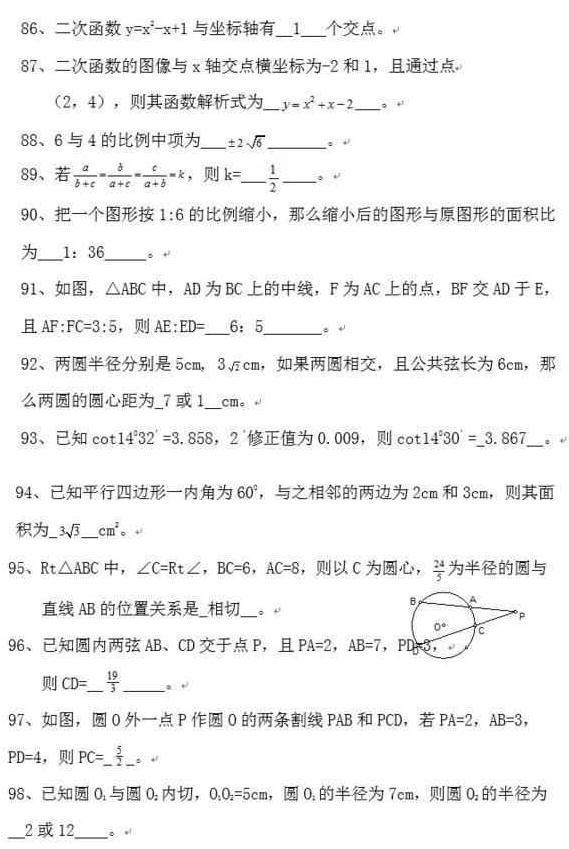 86、二次函数 y=x²-x+1 与坐标轴有__1___个交点。
87、二次函数的图像与 x 轴交点横坐标为-2 和 1，且通过点
（2，4），则其函数解析式为__y=x²+x-2___。
88、6 与 4 的比例中项为___±2√6_______。
89、若 a/(b+c)=b/(a+c)=c/(a+b)=k，则 k=___1/2____。
90、把一个图形按 1:6 的比例缩小，那么缩小后的图形与原图形的面积比
为___1：36_____。
91、如图，△ABC 中，AD 为 BC 上的中线，F 为 AC 上的点，BF 交 AD 于 E，
且 AF:FC=3:5，则 AE:ED=___6：5_______。
92、两圆半径分别是 5cm, 3√2cm，如果两圆相交，且公共弦长为 6cm，那
么两圆的圆心距为_7 或 1__cm。
93、已知 cot14⁰32′=3.858，2′修正值为 0.009，则 cot14⁰30′=_3.867__。
94、已知平行四边形一内角为 60⁰，与之相邻的两边为 2cm 和 3cm，则其面
积为_3√3__cm²。
95、Rt△ABC 中，∠C=Rt∠，BC=6，AC=8，则以 C 为圆心，24/5 为半径的圆与
直线 AB 的位置关系是_相切__。
B A P
O C
D
96、已知圆内两弦 AB、CD 交于点 P，且 PA=2，AB=7，PD=3，
则 CD=__19/3______。
97、如图，圆 O 外一点 P 作圆 O 的两条割线 PAB 和 PCD，若 PA=2，AB=3，
PD=4，则 PC=_5/2_。
98、已知圆 O₁与圆 O₂内切，O₁O₂=5cm，圆 O₁的半径为 7cm，则圆 O₂的半径为
__2 或 12____。